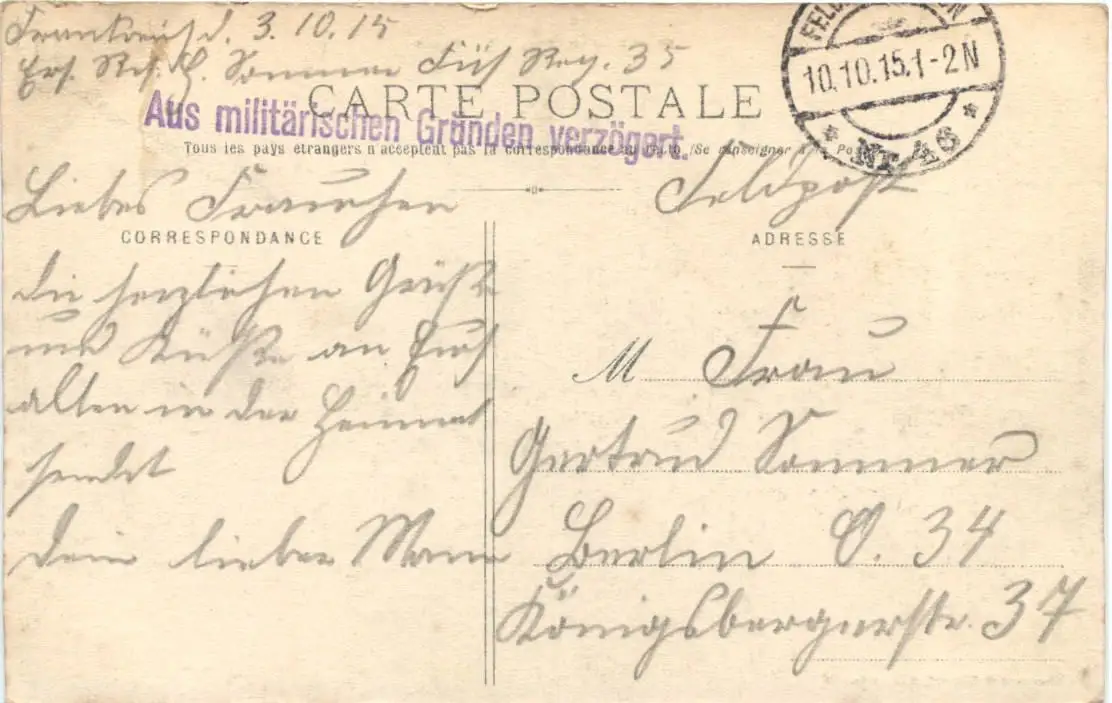 Frankreich d. 3.10.15
Ers. Res. G. Sommer Füs Reg. 35
CARTE POSTALE
Aus militärischen Gründen verzögert.
Tous les pays étrangers n'acceptent pas la correspondance au recto (Se renseigner à la Poste)
FELD
10.10.15.1-2N
* Nr. 46 *
Feldpost
CORRESPONDANCE
Liebes Frauchen
die herzlichen Grüße
und Küße an Euch
allen in der Heimat
sendet
Dein lieber Mann
ADRESSE
M Frau
Gertrud Sommer
Berlin O. 34
Königsbergerstr. 37